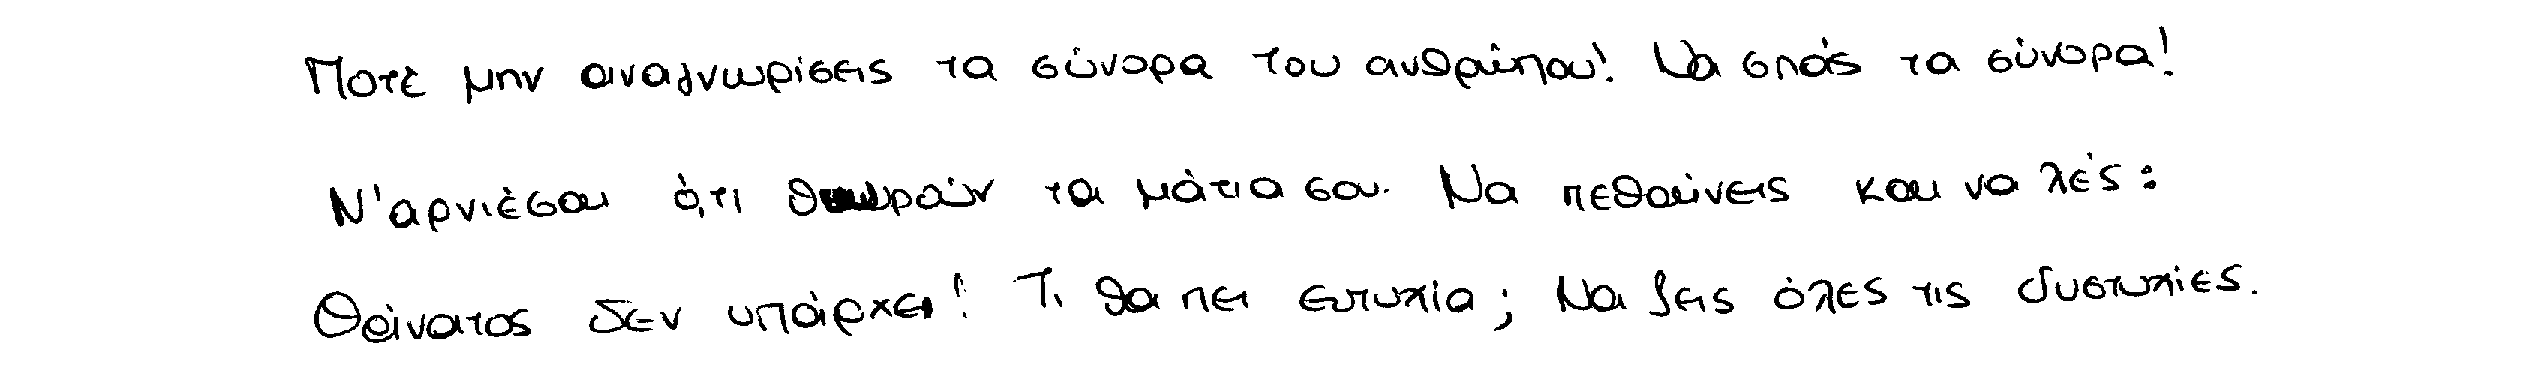 Ποτέ μην αναγνωρίσεις τα σύνορα του ανθρώπου! Να σπάς τα σύνορα!
Ν'αρνιέσαι ό,τι θωρούν τα μάτια σου. Να πεθαίνεις και να λές:
Θάνατος δεν υπάρχει! Τι θα πει ευτυχία; Να ζεις όλες τις δυστυχίες.